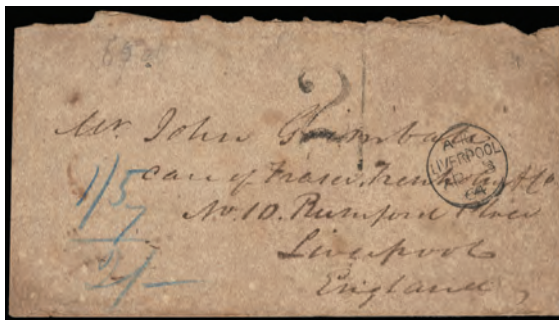 2/
Mr. John Grimball
care of Fraser, Trenholm & Co
No. 10. Rumford Place
Liverpool
England
1/5
7
2/-
LIVERPOOL